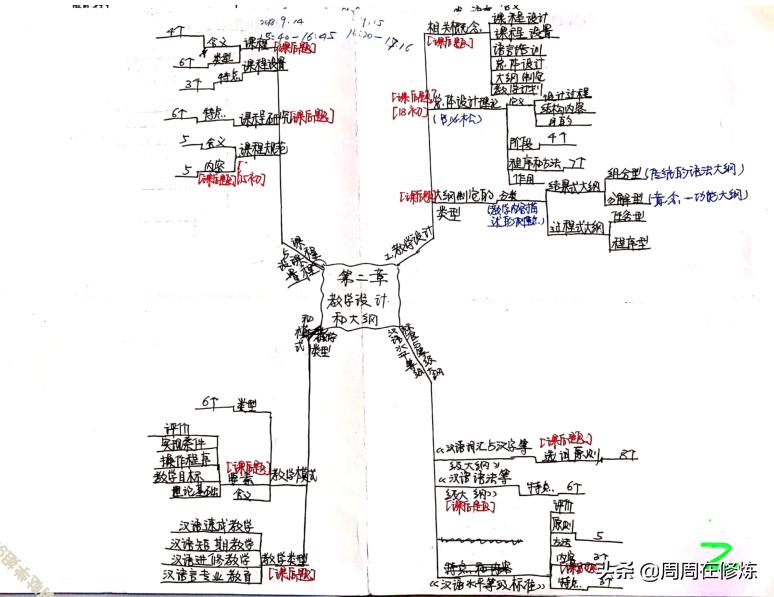 2018.9.14
15:40-16:45
9.15
16:20-17:16
第二章
教学设计
和大纲
1.教学设计
相关概念
[课后题]
课程设计
课程设置
语言培训
总体设计
大纲制定
教学计划
[课后题]
[18初]
总体设计理论
设计过程
结构内容
目的
阶段
4个
程序和方法
7个
作用
[课后题]
大纲制定的
类型
分类
结果式大纲
组合型
分解型
过程式大纲
任务型
程序型
课程
与课程
设置
4个
含义
6个
类型
课程
[课后题]
3个
特点
课程设置
6个
特点
课程研究
[课后题]
5
含义
课程规范
5
内容
[课后题]
教学
类型
和模
式
6个
类型
评价
实现条件
操作程序
教学目标
理论基础
[课后题]
要素
含义
教学模式
汉语速成教学
汉语短期教学
汉语进修教学
汉语言专业教育
教学类型
[课后题]
《汉语词汇与汉字等
级大纲》
[课后题]
选词原则
8个
《汉语语法等
级大纲》
[课后题]
特点
6个
评价
原则
方法
5
内容
特点
《汉语水平等级标准》
2
头条 @周周在修炼